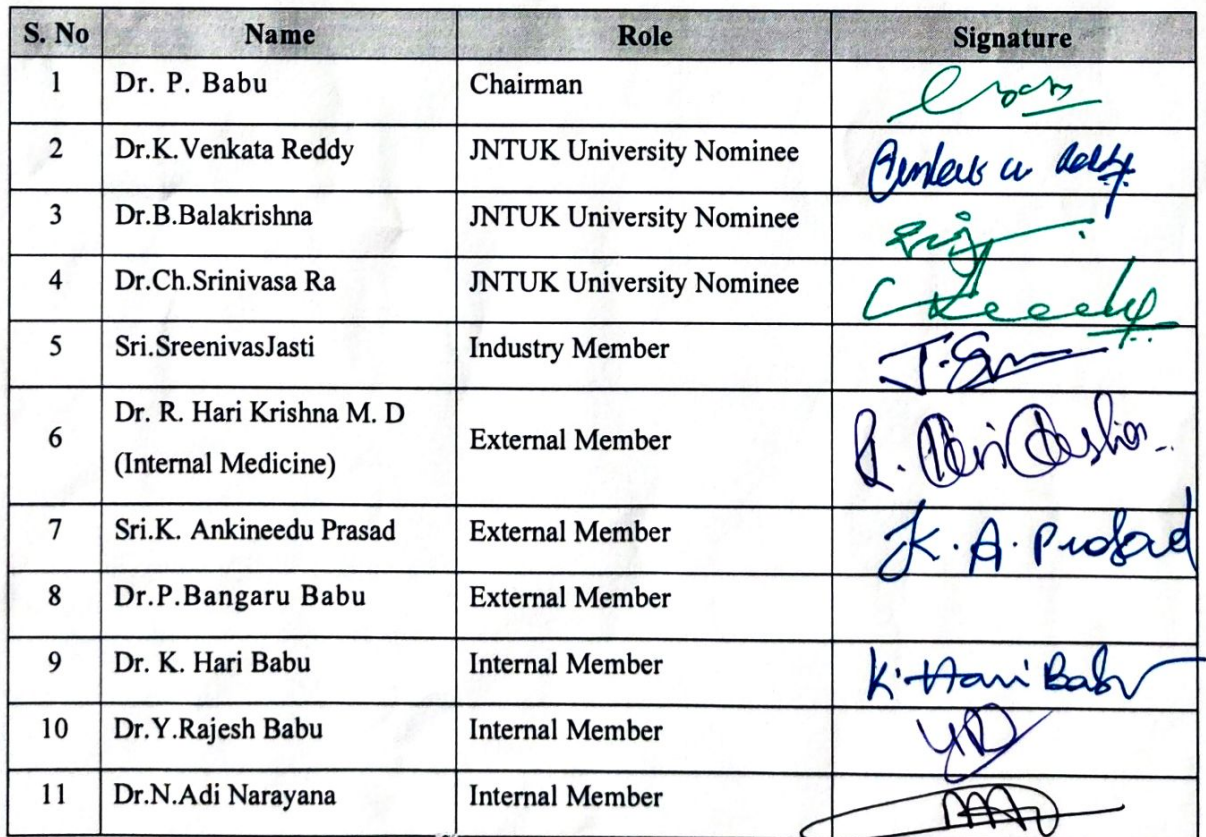 S. No Name Role Signature
1 Dr. P. Babu Chairman
2 Dr.K.Venkata Reddy JNTUK University Nominee
3 Dr.B.Balakrishna JNTUK University Nominee
4 Dr.Ch.Srinivasa Ra JNTUK University Nominee
5 Sri.SreenivasJasti Industry Member
Dr. R. Hari Krishna M. D
6 External Member
(Internal Medicine)
7 Sri.K. Ankineedu Prasad External Member K. A. Prasad
8 Dr.P.Bangaru Babu External Member
9 Dr. K. Hari Babu Internal Member K. Hari Babu
10 Dr.Y.Rajesh Babu Internal Member
11 Dr.N.Adi Narayana Internal Member